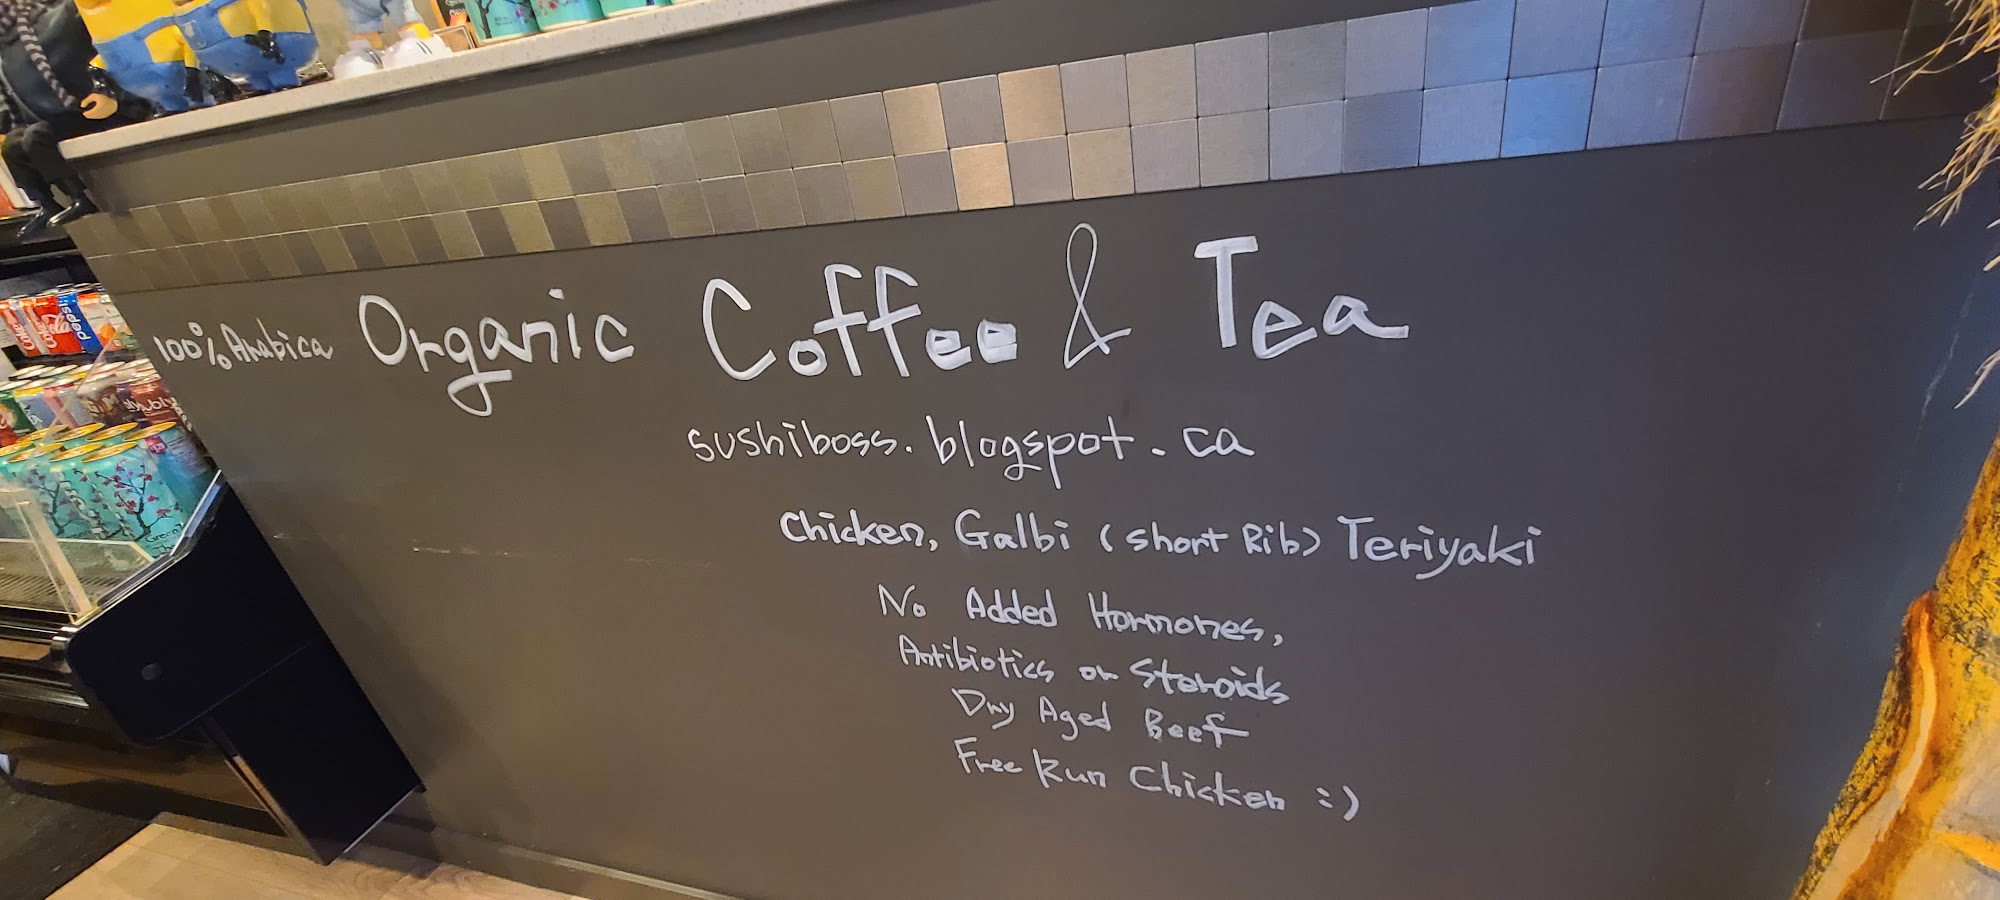 100% Arabica Organic Coffee & Tea
sushiboss.blogspot.ca
Chicken, Galbi (short Rib) Teriyaki
No Added Hormones,
Antibiotics or Steroids
Dry Aged Beef
Free Run Chicken :)
Coke
Coca-Cola
pepsi
Green